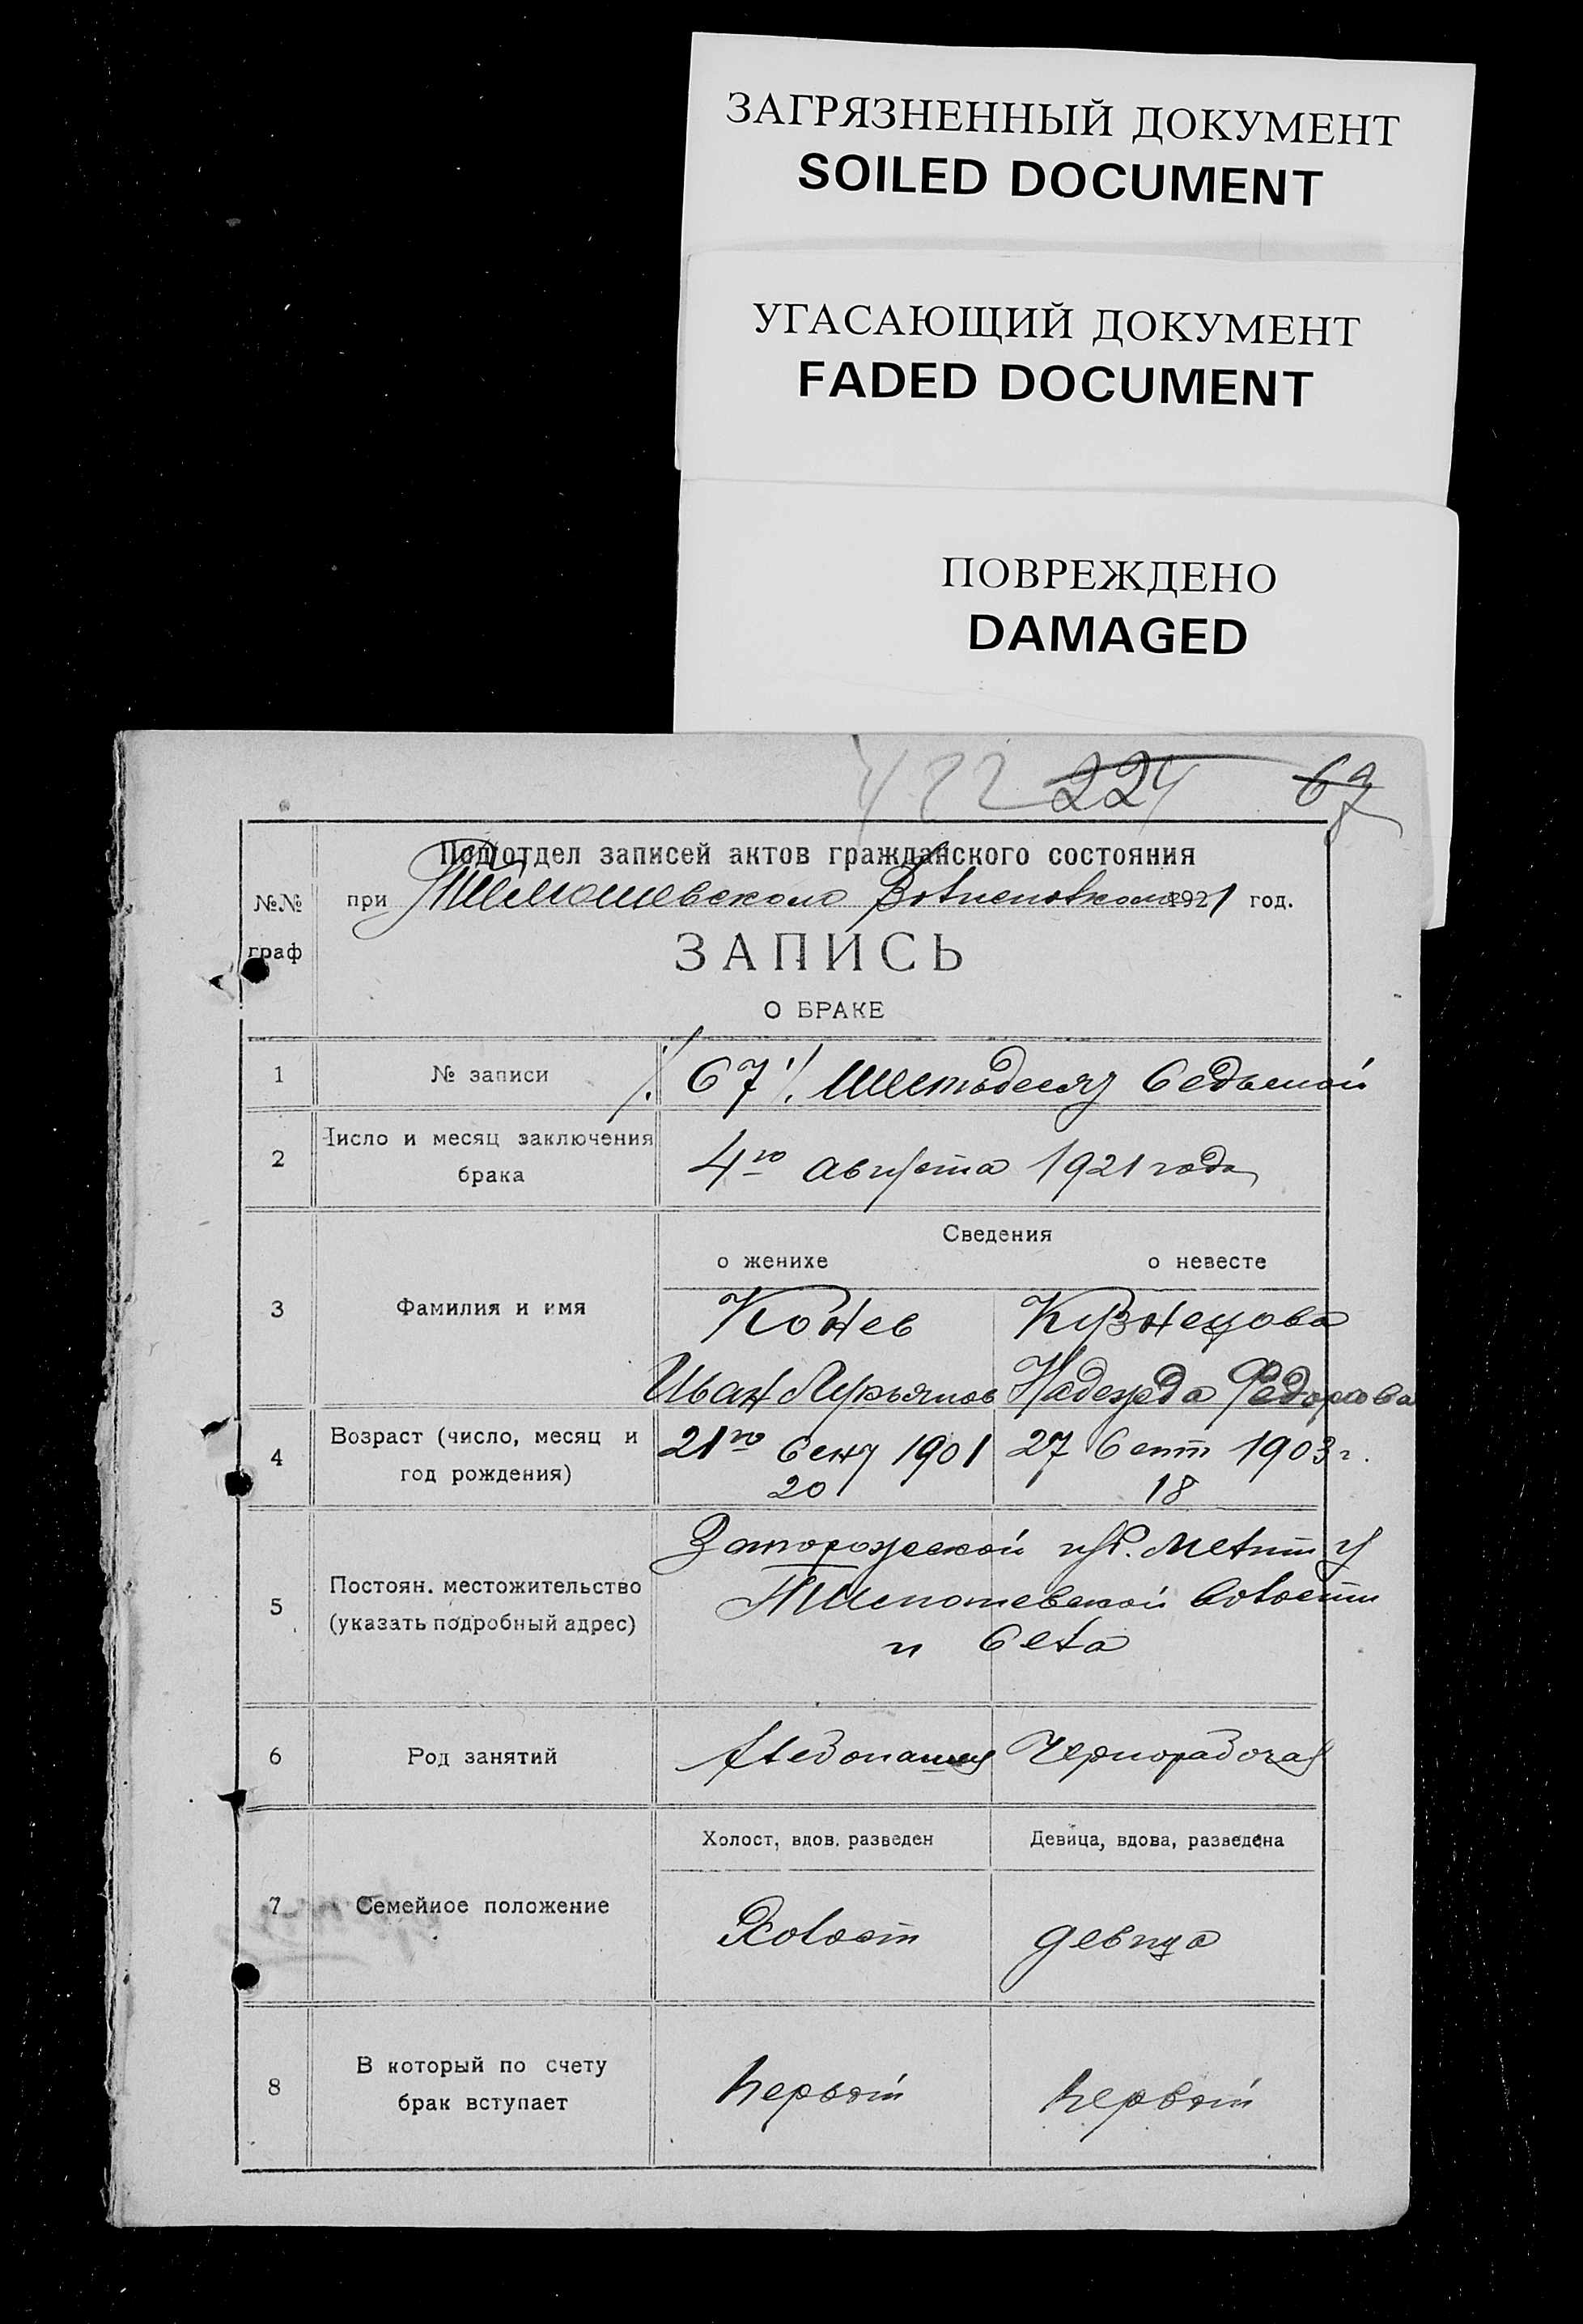 ЗАГРЯЗНЕННЫЙ ДОКУМЕНТ
SOILED DOCUMENT
УГАСАЮЩИЙ ДОКУМЕНТ
FADED DOCUMENT
ПОВРЕЖДЕНО
DAMAGED
422 224 67
Подотдел записей актов гражданского состояния
№№ граф
при Тимошевском Волисполкоме 1921 год.
ЗАПИСЬ
О БРАКЕ
1 № записи ./. 67 ./. Шестьдесят Седьмой
2 Число и месяц заключения брака 4го августа 1921 года
Сведения
о женихе о невесте
3 Фамилия и имя Конев Кузнецова
Иван Лурьянов Надежда Федорова
4 Возраст (число, месяц и год рождения) 21го Сент 1901 27 Сент 1903 г.
20 18
5 Постоян. местожительство (указать подробный адрес) Запорожской губ. Мелит у
Тимошевской Волости
и Села
6 Род занятий Хлебопашец Чернорабочая
Холост, вдов. разведен Девица, вдова, разведена
7 Семейное положение Холост девица
8 В который по счету брак вступает первый первый